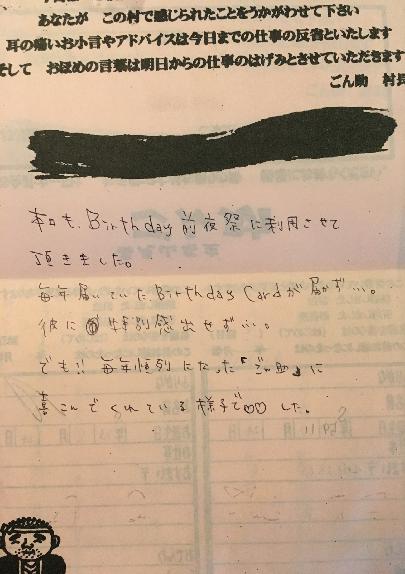 あなたが この村で感じられたことをうかがわせて下さい
耳の痛いお小言やアドバイスは今日までの仕事の反省といたします
そして おほめの言葉は明日からの仕事のはげみとさせていただきます
ごん助 村長
本日も、Birthday前夜祭に利用させて
頂きました。
毎年届いていたBirthday Cardが届かず…。
彼に特別感出せず…。
でも!! 毎年恒例になった「ごん助」に
喜こんでくれている様子で♡♡した。